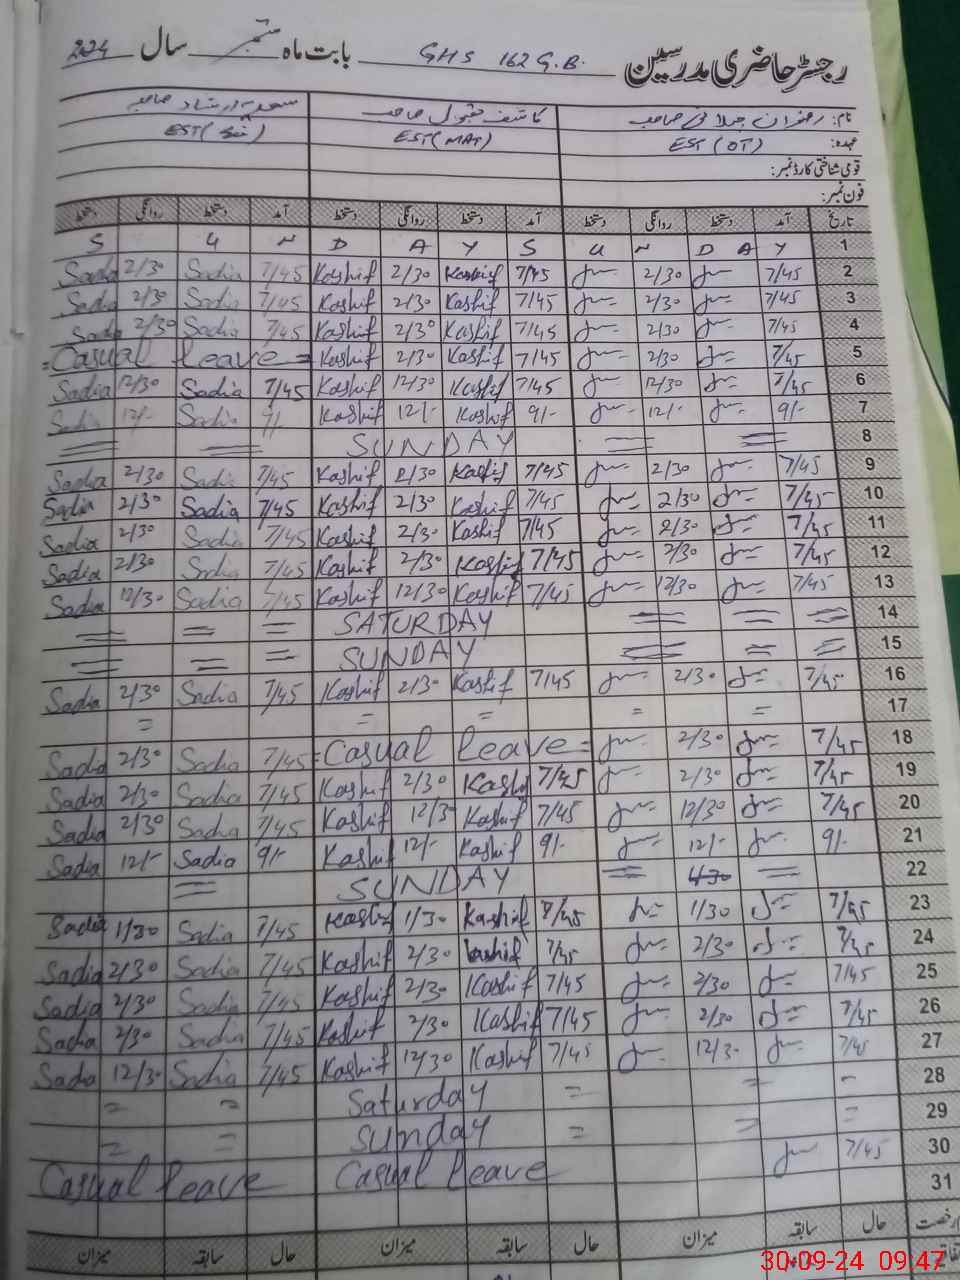 رجسٹر حاضری مدرسین GHS 162 G.B. بابت ماہ ستمبر سال 2024
نام: رضوان جیلانی صاحب کاشف مقبول صاحب سعدیہ ارشاد صاحبہ
عہدہ: EST (OT) EST (MAT) EST (Sci)
قومی شناختی کارڈ نمبر:
فون نمبر:
تاریخ آمد دستخط روانگی دستخط آمد دستخط روانگی دستخط آمد دستخط روانگی دستخط
S U N D A Y S U N D A Y 1
Sadia 2/30 Sadia 7/45 Kashif 2/30 Kashif 7/45 2/30 7/45 2
Sadia 2/30 Sadia 7/45 Kashif 2/30 Kashif 7/45 2/30 7/45 3
Sadia 2/30 Sadia 7/45 Kashif 2/30 Kashif 7/45 2/30 7/45 4
= Casual leave = Kashif 2/30 Kashif 7/45 2/30 7/45 5
Sadia 12/30 Sadia 7/45 Kashif 12/30 Kashif 7/45 12/30 7/45 6
Sadia 12/- Sadia 9/- Kashif 12/- Kashif 9/- 12/- 9/- 7
= = SUNDAY = = 8
Sadia 2/30 Sadia 7/45 Kashif 2/30 Kashif 7/45 2/30 7/45 9
Sadia 2/30 Sadia 7/45 Kashif 2/30 Kashif 7/45 2/30 7/45 10
Sadia 2/30 Sadia 7/45 Kashif 2/30 Kashif 7/45 2/30 7/45 11
Sadia 2/30 Sadia 7/45 Kashif 2/30 Kashif 7/45 2/30 7/45 12
Sadia 12/30 Sadia 7/45 Kashif 12/30 Kashif 7/45 12/30 7/45 13
= = = SATURDAY = = = 14
= = = SUNDAY = = = 15
Sadia 2/30 Sadia 7/45 Kashif 2/30 Kashif 7/45 2/30 7/45 16
= = = = = 17
Sadia 2/30 Sadia 7/45 = Casual leave = 2/30 7/45 18
Sadia 2/30 Sadia 7/45 Kashif 2/30 Kashif 7/45 2/30 7/45 19
Sadia 2/30 Sadia 7/45 Kashif 12/30 Kashif 7/45 12/30 7/45 20
Sadia 12/- Sadia 9/- Kashif 12/- Kashif 9/- 12/- 9/- 21
= SUNDAY = = 22
Sadia 1/30 Sadia 7/45 Kashif 1/30 Kashif 7/45 1/30 7/45 23
Sadia 2/30 Sadia 7/45 Kashif 2/30 Kashif 7/45 2/30 7/45 24
Sadia 2/30 Sadia 7/45 Kashif 2/30 Kashif 7/45 2/30 7/45 25
Sadia 2/30 Sadia 7/45 Kashif 2/30 Kashif 7/45 2/30 7/45 26
Sadia 12/30 Sadia 7/45 Kashif 12/30 Kashif 7/45 12/30 7/45 27
= = Saturday = = - 28
= = Sunday = = = 29
Casual leave Casual leave 7/45 30
31
رخصت حال سابقہ میزان حال سابقہ میزان حال سابقہ میزان
30-09-24 09:47